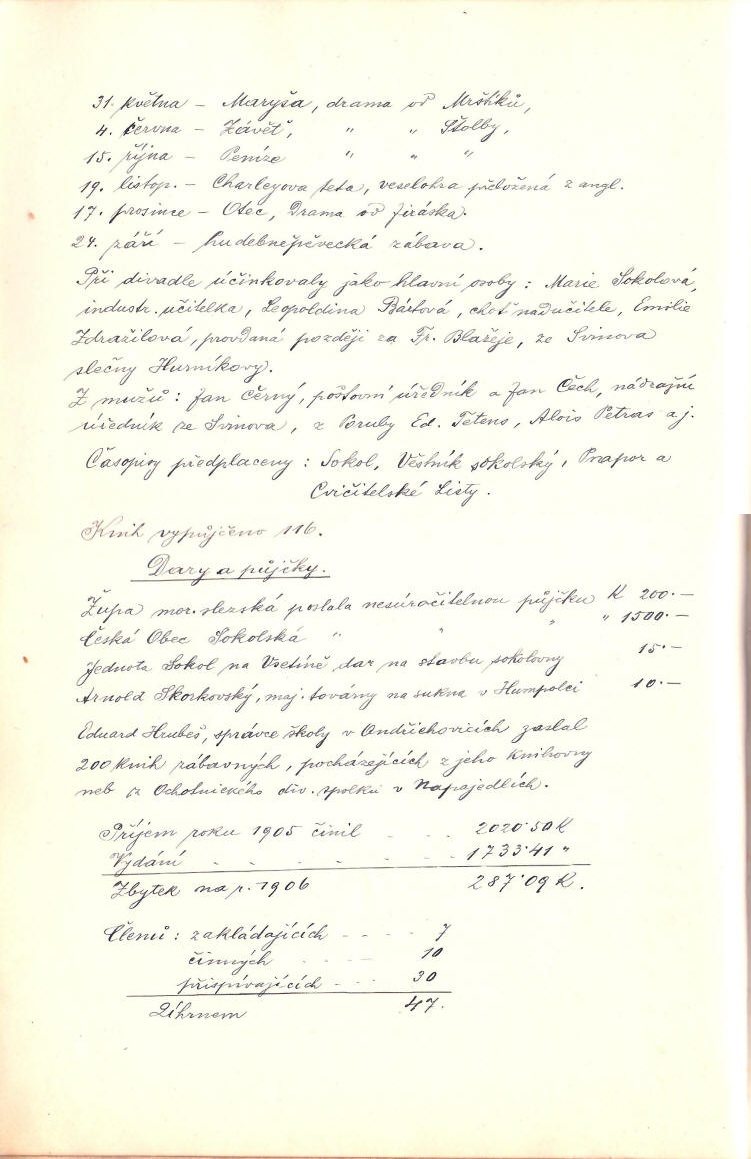 31. května – Maryša, drama od Mrštíků,
4. června – Závěť, " " Štolby,
15. října – Peníze " " "
19. listop. – Charleyova teta, veselohra přeložená z angl.
17. prosince – Otec, Drama od Jiráska.
24. září – hudebněpěvecká zábava.
Při divadle účinkovaly jako hlavní osoby: Marie Sokolová,
industr. učitelka, Leopoldina Bártová, choť nadučitele, Emilie
Zdražilová, provdaná později za Fr. Blažeje, ze Svinova
slečny Hurníkovy.
Z mužů: Jan Černý, poštovní úředník a Jan Čech, nádražní
úředník ze Svinova, z Poruby Ed. Tetens, Alois Petras a j.
Časopisy předplaceny: Sokol, Věstník sokolský, Prapor a
Cvičitelské Listy.
Knih vypůjčeno 116.
Dary a půjčky.
Župa mor. slezská poslala nesúročitelnou půjčku K 200·–
Česká Obec Sokolská " " " " 1500·–
Jednota Sokol na Vsetíně dar na stavbu sokolovny 15·–
Arnold Skorkovský, maj. továrny na sukna v Humpolci 10·–
Eduard Hrubeš, správce školy v Ondřichovicích zaslal
200 knih zábavných, pocházejících z jeho knihovny
neb iz Ochotnického div. spolku v Napajedlích.
Příjem roku 1905 činil . . . 2020·50 K
Vydání . . . . . . . 1733·41 "
Zbytek na r. 1906 287·09 K.
Členů: zakládajících - - - - 7
činných - - - - 10
přispívajících - - - 30
Úhrnem 47.